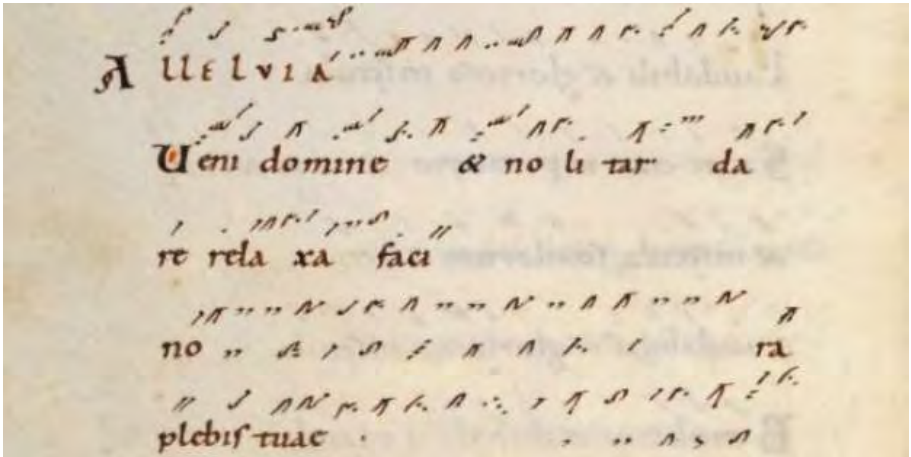 ALLELVIA
Veni domine & noli tar da
re rela xa faci
no ra
plebis tuae